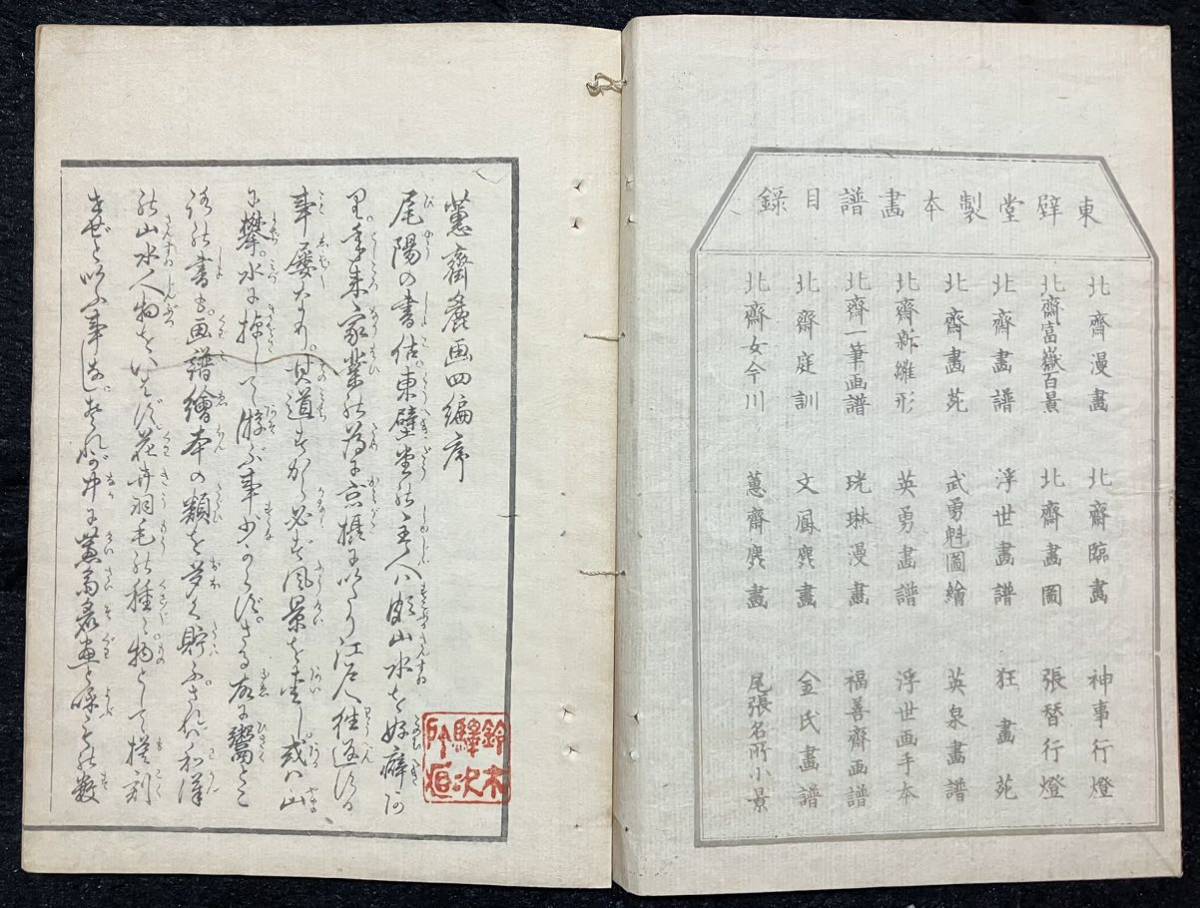 東壁堂製本畫譜目録
北齋漫畫
北齋臨畫
神事行燈
北齋富嶽百景
北齋畫圖
張替行燈
北齋畫譜
浮世畫譜
狂畫苑
北齋畫苑
武勇魁圖繪
英泉畫譜
北齋新雛形
英勇畫譜
浮世画手本
北齋一筆画譜
珖琳漫畫
福善齋画譜
北齋庭訓
文鳳麁畫
金氏畫譜
北齋女今川
蕙齋麁畫
尾張名所小景
蕙齋麁画四編序
尾陽の書估東壁堂の主人ハ頗山水を好癖あ
り年来家業の為に京攝にいたり江戸へ往返する
事屡なり其道すから必す風景を
に攀水に掉して游ぶ事少からず
書画譜繪本の類を多く貯ふされバ和漢
の山水人物をいはず花卉羽毛の種々物として摸刻
せざといふ事なしそれが中に蕙斎麁画と
鈴木
驛次